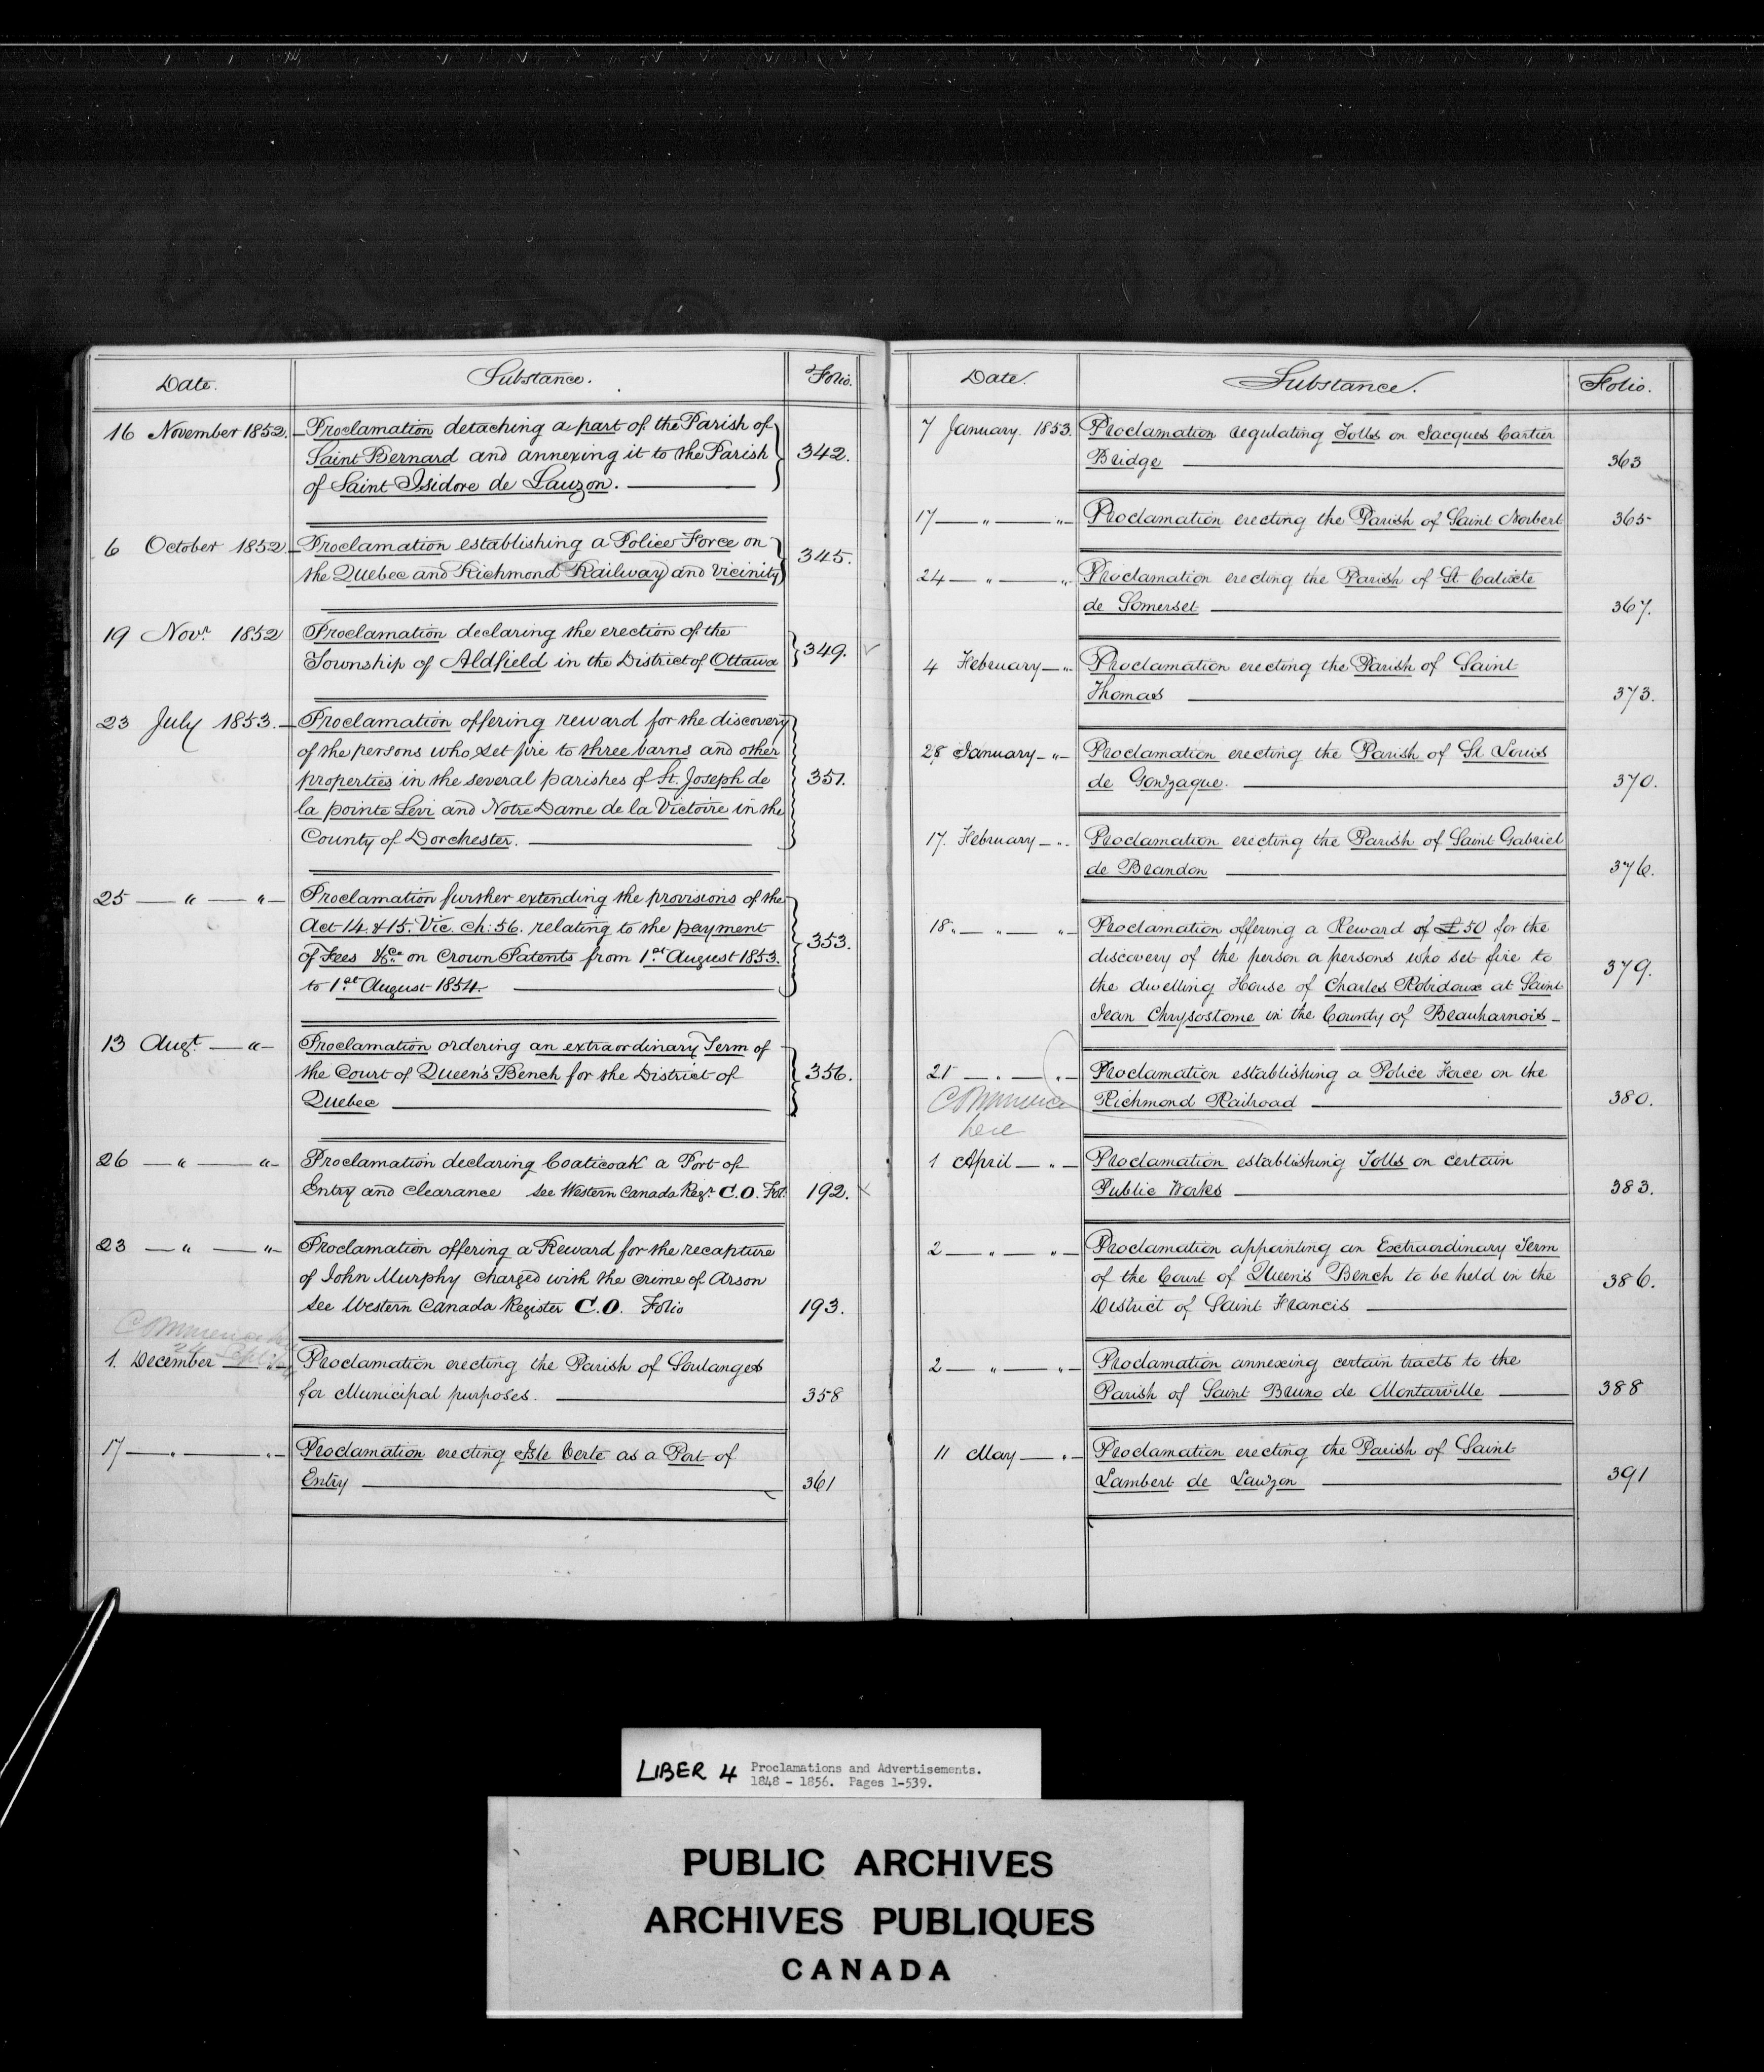 Date. Substance. Folio.
16 November 1852. Proclamation detaching a part of the Parish of
Saint Bernard and annexing it to the Parish 342.
of Saint Isidore de Lauzon.
6 October 1852 Proclamation establishing a Police Force on
the Quebec and Richmond Railway and Vicinity 345.
19 Novr. 1852 Proclamation declaring the erection of the
Township of Aldfield in the District of Ottawa 349.
23 July 1853. Proclamation offering reward for the discovery
of the persons who set fire to three barns and other
properties in the several parishes of St. Joseph de 351.
la pointe Levi and Notre Dame de la Victoire in the
County of Dorchester.
25 — " — " — Proclamation further extending the provisions of the
Act 14. & 15. Vic. ch: 56. relating to the payment
of Fees &ca on Crown Patents from 1st August 1853. 353.
to 1st August 1854.
13 Augt. — " — Proclamation ordering an extraordinary Term of
the Court of Queen's Bench for the District of 356.
Quebec
26 — " — " — Proclamation declaring Coaticoak a Port of
Entry and clearance see Western Canada Regr. C.O. Fol. 192.
23 — " — " — Proclamation offering a Reward for the recapture
of John Murphy charged with the crime of Arson
see Western Canada Register C.O. Folio 193.
Commence
24 Sept
1. December — " — Proclamation erecting the Parish of Soulanges
for Municipal purposes. 358
17 — " — " — Proclamation erecting Isle Verte as a Port of
Entry 361
Date. Substance. Folio.
7 January. 1853. Proclamation regulating Tolls on Jacques Cartier
Bridge 363
17 — " — " — Proclamation erecting the Parish of Saint Norbert 365
24 — " — " — Proclamation erecting the Parish of St. Calixte
de Somerset 367.
4 February — " — Proclamation erecting the Parish of Saint
Thomas 373.
28 January — " — Proclamation erecting the Parish of St Louis
de Gonzague. 370.
17. February — " — Proclamation erecting the Parish of Saint Gabriel
de Brandon 376.
18. — " — " — Proclamation offering a Reward of £50 for the
discovery of the person or persons who set fire to
the dwelling House of Charles Robidoux at Saint 379.
Jean Chrysostome in the County of Beauharnois
21 — " — " — Proclamation establishing a Police Force on the
Commence Richmond Railroad 380.
here
1 April — " — Proclamation establishing Tolls on certain
Public Works 383.
2 — " — " — Proclamation appointing an Extraordinary Term
of the Court of Queen's Bench to be held in the 386.
District of Saint Francis
2 — " — " — Proclamation annexing certain tracts to the
Parish of Saint Bruno de Montarville 388
11 May — " — Proclamation erecting the Parish of Saint
Lambert de Lauzon 391
LIBER 4 Proclamations and Advertisements.
1848 - 1856. Pages 1-539.
PUBLIC ARCHIVES
ARCHIVES PUBLIQUES
CANADA